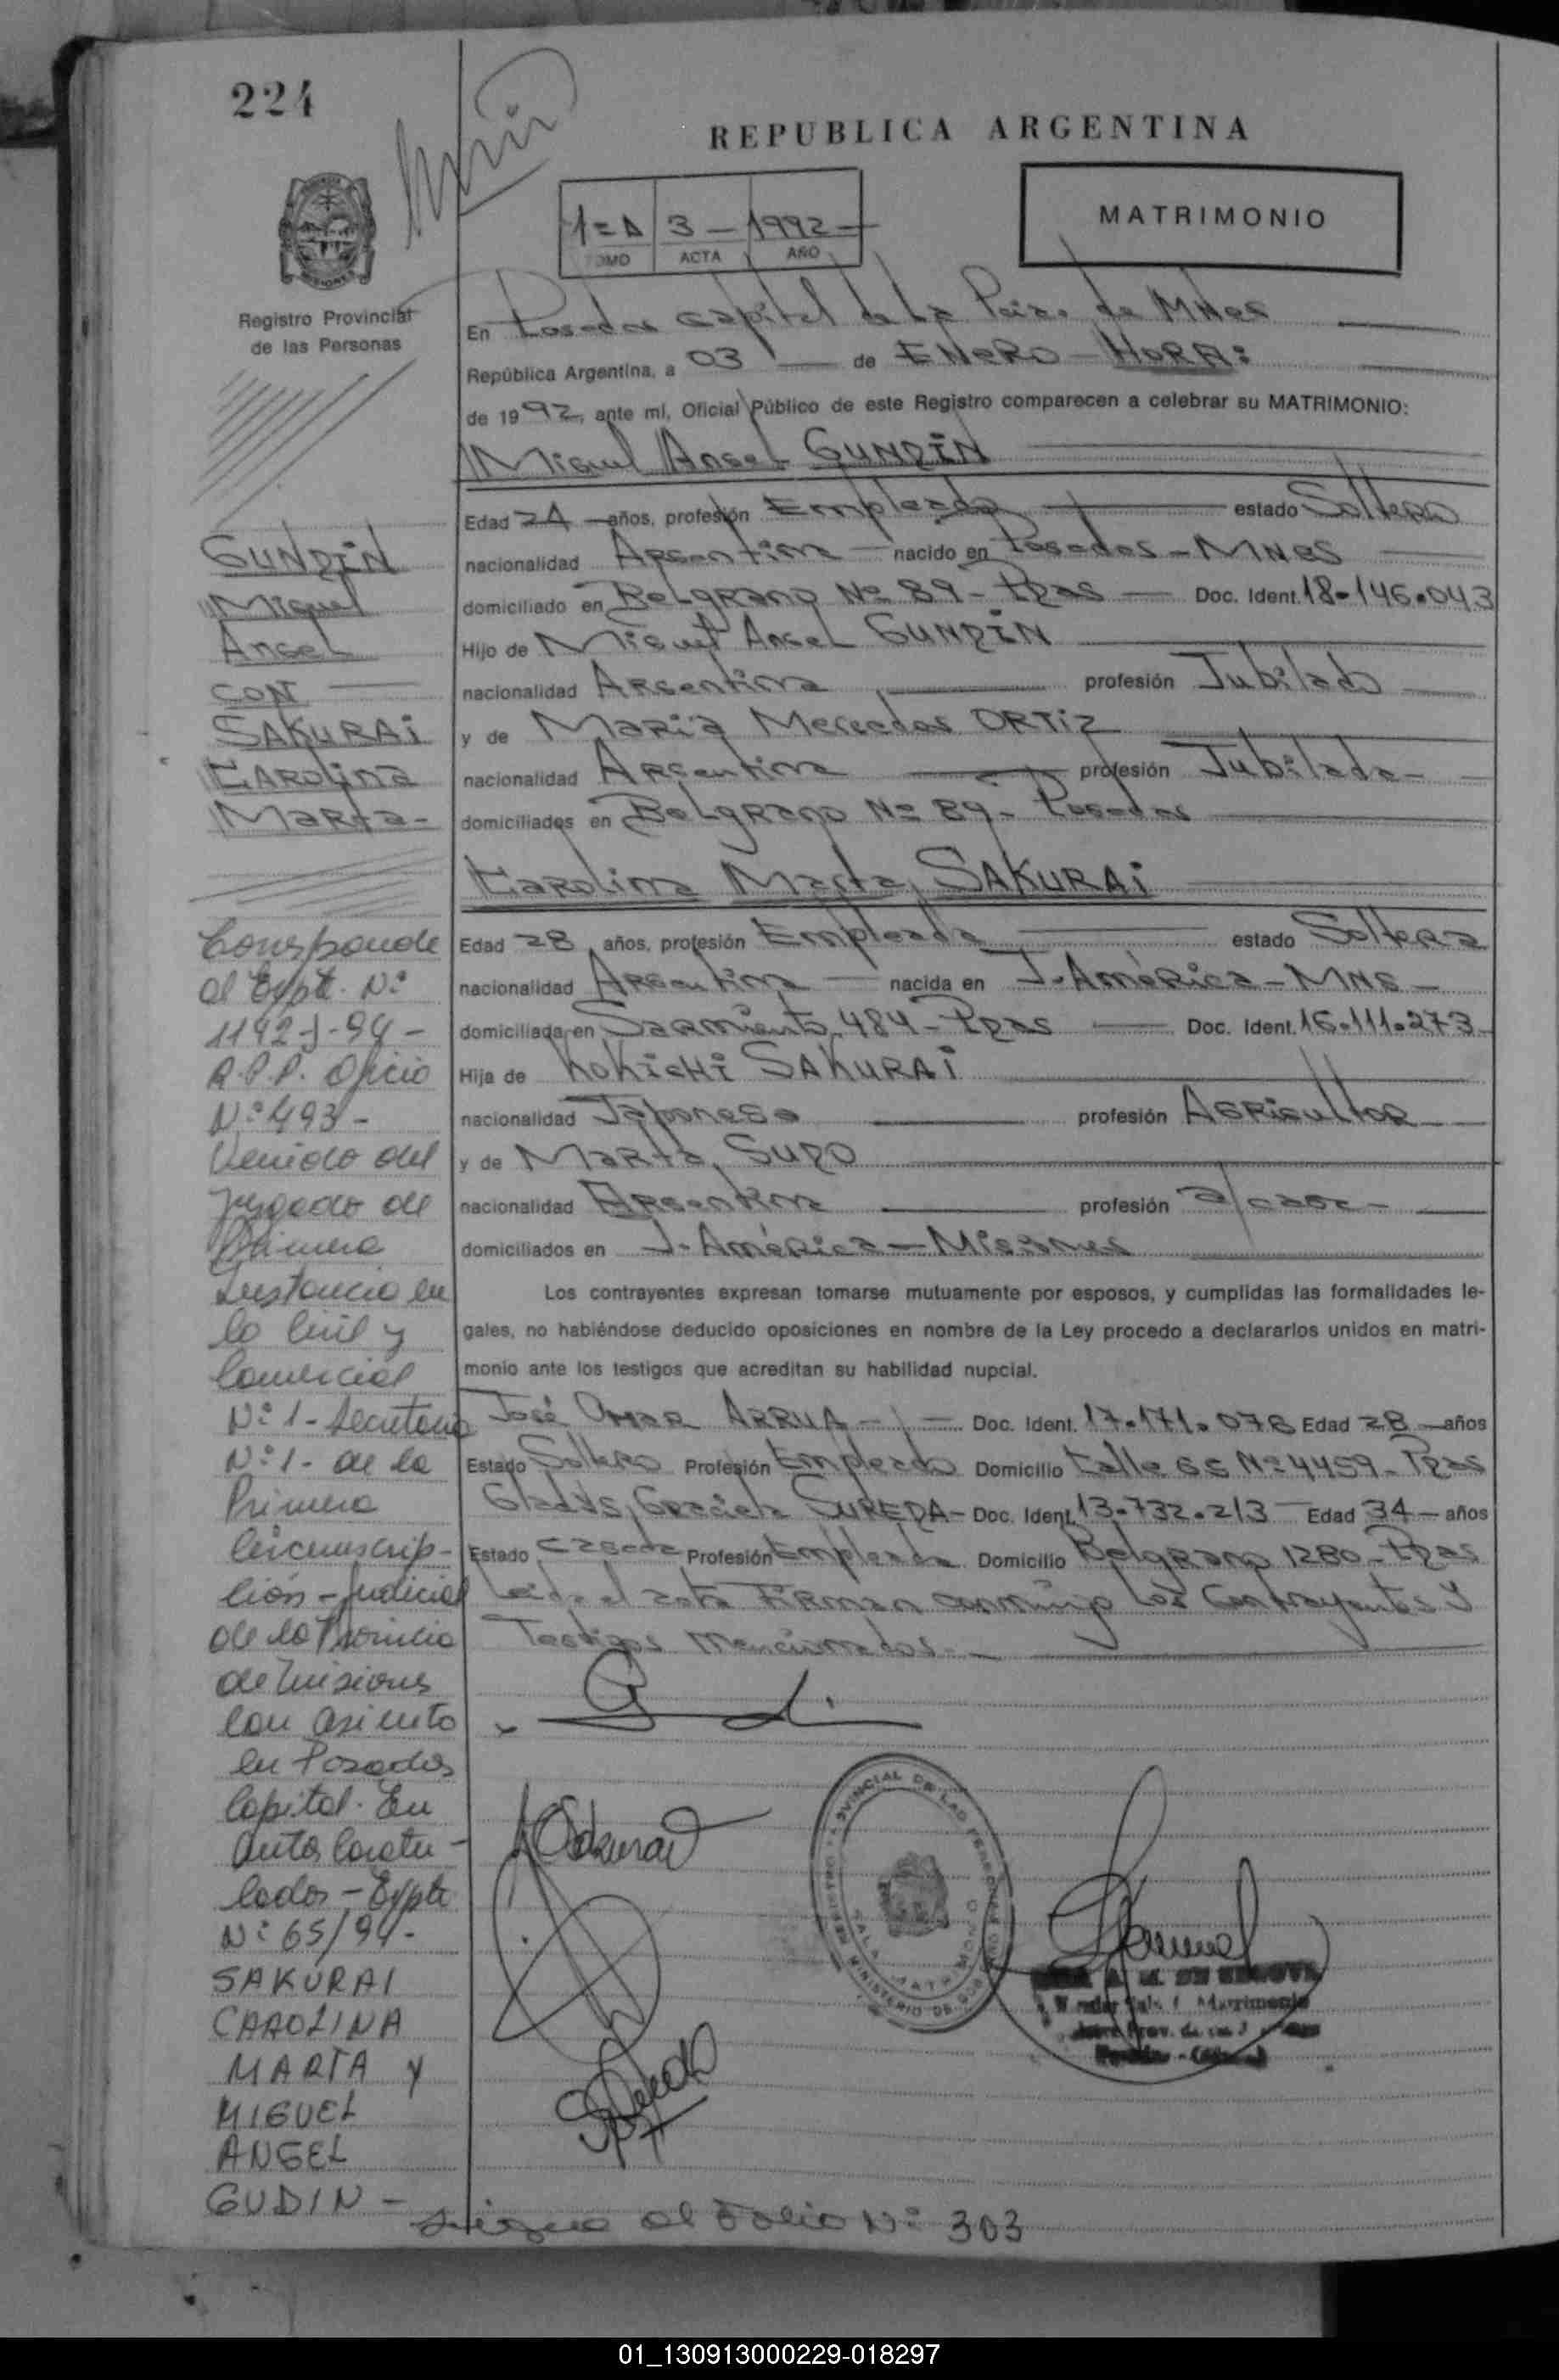 224
REPUBLICA ARGENTINA
1=A 3 - 1992 -
TOMO ACTA AÑO
MATRIMONIO
Registro Provincial
de las Personas
En Posadas Capital de La de MNes
República Argentina, a 03 — de ENERO - HORA:
de 1992, ante mí, Oficial Público de este Registro comparecen a celebrar su MATRIMONIO:
Miguel Angel GUNDIN
Edad 24 - años, profesión Empleado estado Soltero
nacionalidad Argentina nacido en Posadas - MNES
domiciliado en Belgrano Nº 89 - Pdas — Doc. Ident. 18.146.043
Hijo de Miguel Angel GUNDIN
nacionalidad Argentina profesión Jubilado
y de María Mercedes ORTIZ
nacionalidad Argentina profesión Jubilada -
domiciliados en Belgrano Nº 89 - Posadas
Carolina Marta SAKURAI
Edad 28 años, profesión Empleada estado Soltera
nacionalidad Argentina — nacida en J. América - MNS -
domiciliada en Sarmiento 484 - Pdas — Doc. Ident. 16.111.273
Hija de KOKICHI SAKURAI
nacionalidad Japonesa profesión Agricultor
y de Marta SUDO
nacionalidad Argentina profesión a/casa -
domiciliados en J. América - Misiones
Los contrayentes expresan tomarse mutuamente por esposos, y cumplidas las formalidades le-
gales, no habiéndose deducido oposiciones en nombre de la Ley procedo a declararlos unidos en matri-
monio ante los testigos que acreditan su habilidad nupcial.
José Omar ARRUA - Doc. Ident. 17.171.078 Edad 28 - años
Estado Soltero Profesión Empleado Domicilio Calle Nº 4459 - Pdas
Gladys Graciela SUREDA - Doc. Ident. 13.732.213 Edad 34 - años
Estado Casada Profesión Empleada Domicilio Belgrano 1280 - Pdas
Leida el acta Firman conmigo Los Contrayentes y
Testigos Mencionados. -
GUNDIN
Miguel
Angel
CON
SAKURAI
CAROLINA
Marta -
Corresponde
al Expte. Nº
1192-J-94 -
R.P.P. Oficio
Nº 493 -
Venido del
Juzgado de
Primera
Instancia en
lo Civil y
Comercial
Nº 1 - Secretaria
Nº 1 - de la
Primera
Circunscrip-
ción - Judicial
de la Provincia
de Misiones
con asiento
en Posadas
Capital. En
autos Caratu-
lados - Expte
Nº 65/94 -
SAKURAI
CAROLINA
MARTA y
MIGUEL
ANGEL
GUDIN -
Sakurai
REGISTRO PROVINCIAL DE LAS PERSONAS
MINISTERIO DE
SALA MATRIMONIO
Sigue al Folio Nº 303
01_130913000229-018297